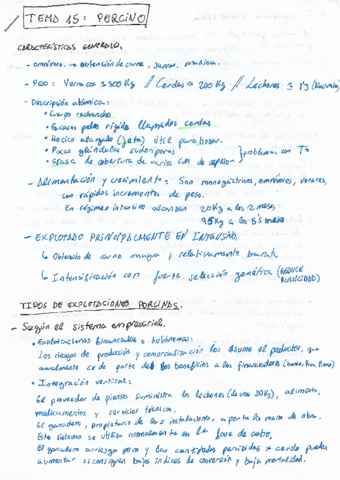 TEMA 15: PORCINO
CARACTERÍSTICAS GENERALES
- omnívoro → obtención de carne, jamón, manteca.
- PESO: Verracos ≥ 300 Kg // Cerdas ≥ 200 Kg // Lechones
- Descripción anatómica:
• Cuerpo redondeado
• Escasos pelos rígidos llamados cerdas
• Hocico alargado (jeta) útil para hozar.
• Pocas glándulas sudoríparas
• Grasa de cobertura de varios CM de espesor
} problemas con Tª
- Alimentación y crecimiento: Son monogástricos, omnívoros, voraces,
con rápidos incrementos de peso.
En régimen intensivo alcanzan 20 Kg a los 2 meses
95 Kg a los 5'5 meses
- EXPLOTADO PRINCIPALMENTE EN INTENSIVO.
↳ Obtención de carne magra y relativamente barata
↳ Intensificación con fuerte selección genética (REDUCE
RUSTICIDAD)
TIPOS DE EXPLOTACIONES PORCINAS.
- Según el sistema empresarial.
• Explotaciones financiadas o autónomas:
Los riesgos de producción y comercialización los asume el productor, que
anualmente cede parte de los beneficios a los financiadores
• Integración vertical:
El proveedor de piensos suministra los lechones (de unos 20Kg), alimento,
medicamentos y servicios técnicos.
El ganadero, propietario de las instalaciones, aporta la mano de obra.
Este sistema se utiliza normalmente en la fase de cebo.
El ganadero arriesga poco y las cantidades percibidas x cerdo pueden
aumentar si consiguen bajos índices de conversión y baja mortalidad.